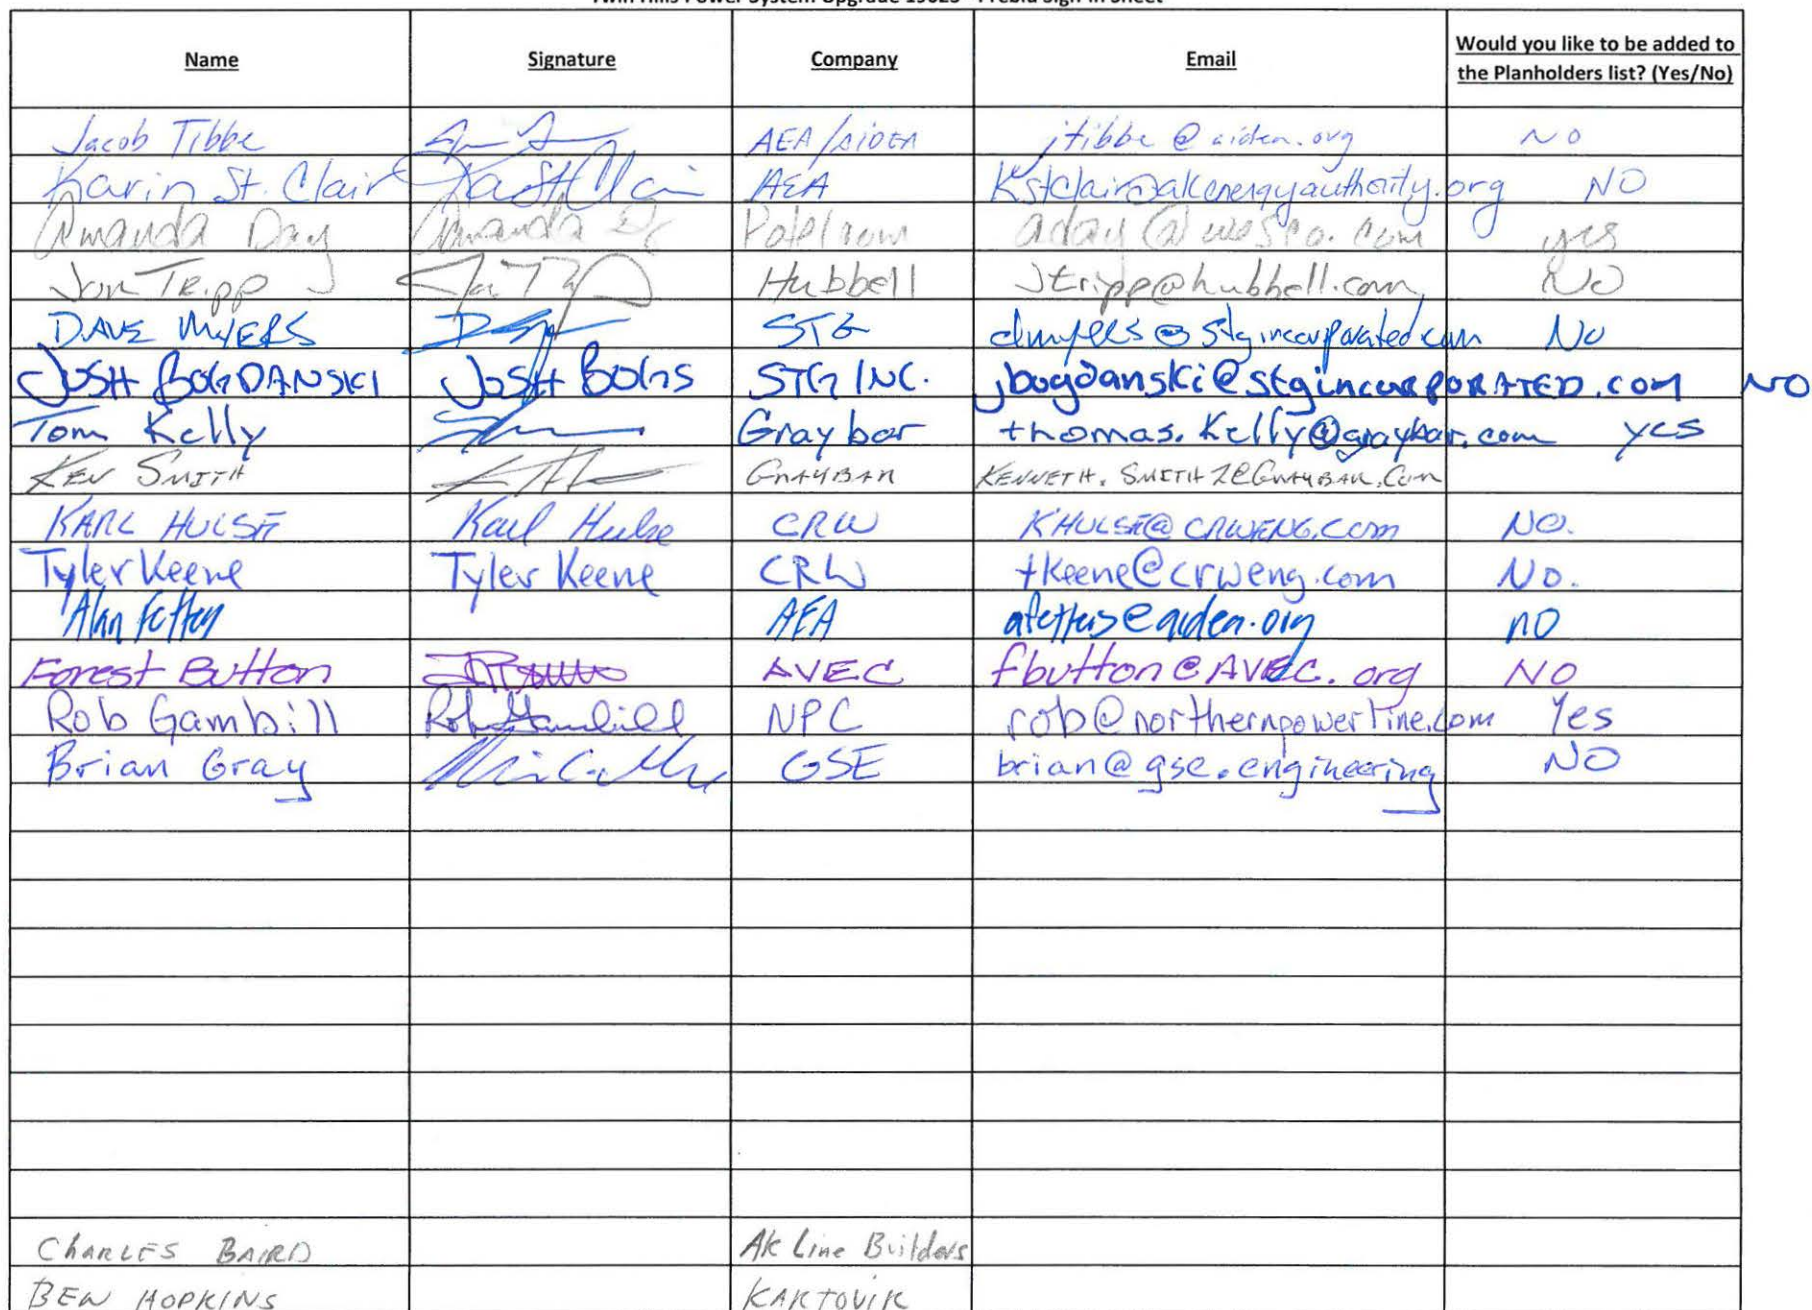 Twin Hills Power System Upgrade 19025 - Prebid Sign-In Sheet
Name Signature Company Email Would you like to be added to the Planholders list? (Yes/No)
Jacob Tibbe AEA/AIDEA jtibbe@aidea.org NO
Karin St. Clair Ka St Clair AEA Kstclair@akenergyauthority.org NO
Amanda Day Amanda Day aday@wesco.com yes
Jon Tripp Hubbell jtripp@hubbell.com No
DAVE MYERS STG dmyers@stgincorporated.com No
JOSH BOGDANSKI JOSH BOGS STG INC. jbogdanski@stgincorPORATED.COM NO
Tom Kelly Graybar thomas.Kelly@graybar.com yes
KEN SMITH GRAYBAR KENNETH.SMITH2@GRAYBAR.COM
KARL HULSE Karl Hulse CRW KHULSE@CRWENG.COM NO.
Tyler Keene Tyler Keene CRW tkeene@crweng.com No.
Alan Fetters AEA afetters@aidea.org no
Forest Button AVEC fbutton@AVEC.org NO
Rob Gambill Rob Gambill NPC rob@northernpowerline.com Yes
Brian Gray GSE brian@gse.engineering NO
CHARLES BAIRD AK Line Builders
BEN HOPKINS KAKTOVIK